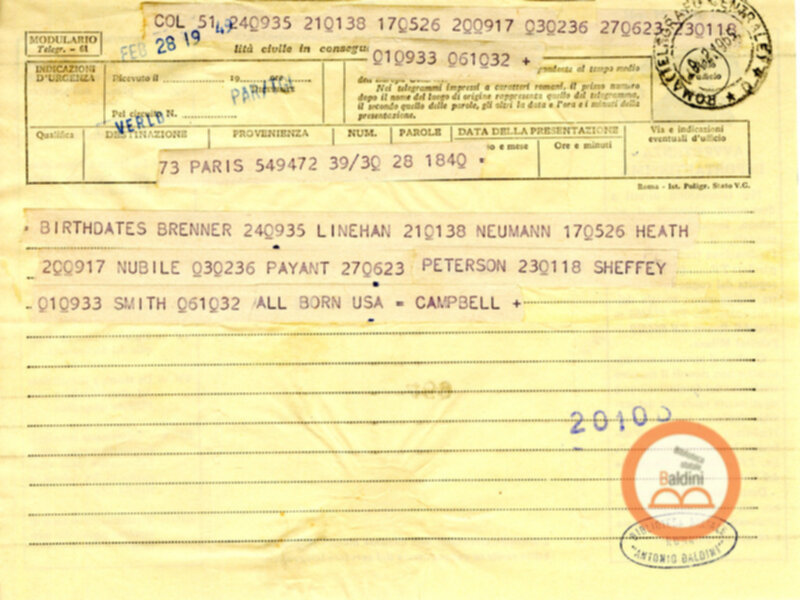 COL 51 240935 210138 170526 200917 030236 270623 230118
FEB 28 19 49
lità civile in consegu
010933 061032 +
MODULARIO
Telegr. - 61
INDICAZIONI
D'URGENZA
Ricevuto il 19
PARITCH
Pel circuito N.
VERLD
pondente al tempo medio
Nei telegrammi impressi a caratteri romani, il primo numero
dopo il nome del luogo di origine rappresenta quello del telegramma,
il secondo quello delle parole, gli altri la data e l'ora e i minuti della
presentazione.
ROMA TELEGRAFO CENTRALE
Ufficio
Qualifica DESTINAZIONE PROVENIENZA NUM. PAROLE DATA DELLA PRESENTAZIONE Via e indicazioni
eventuali d'ufficio
o e mese Ore e minuti
73 PARIS 549472 39/30 28 1840 =
Roma - Ist. Poligr. Stato V.C.
BIRTHDATES BRENNER 240935 LINEHAN 210138 NEUMANN 170526 HEATH
200917 NUBILE 030236 PAYANT 270623 PETERSON 230118 SHEFFEY
010933 SMITH 061032 ALL BORN USA = CAMPBELL +
20100
Biblioteca
statale
Baldini
ROMA
"ANTONIO BALDINI"